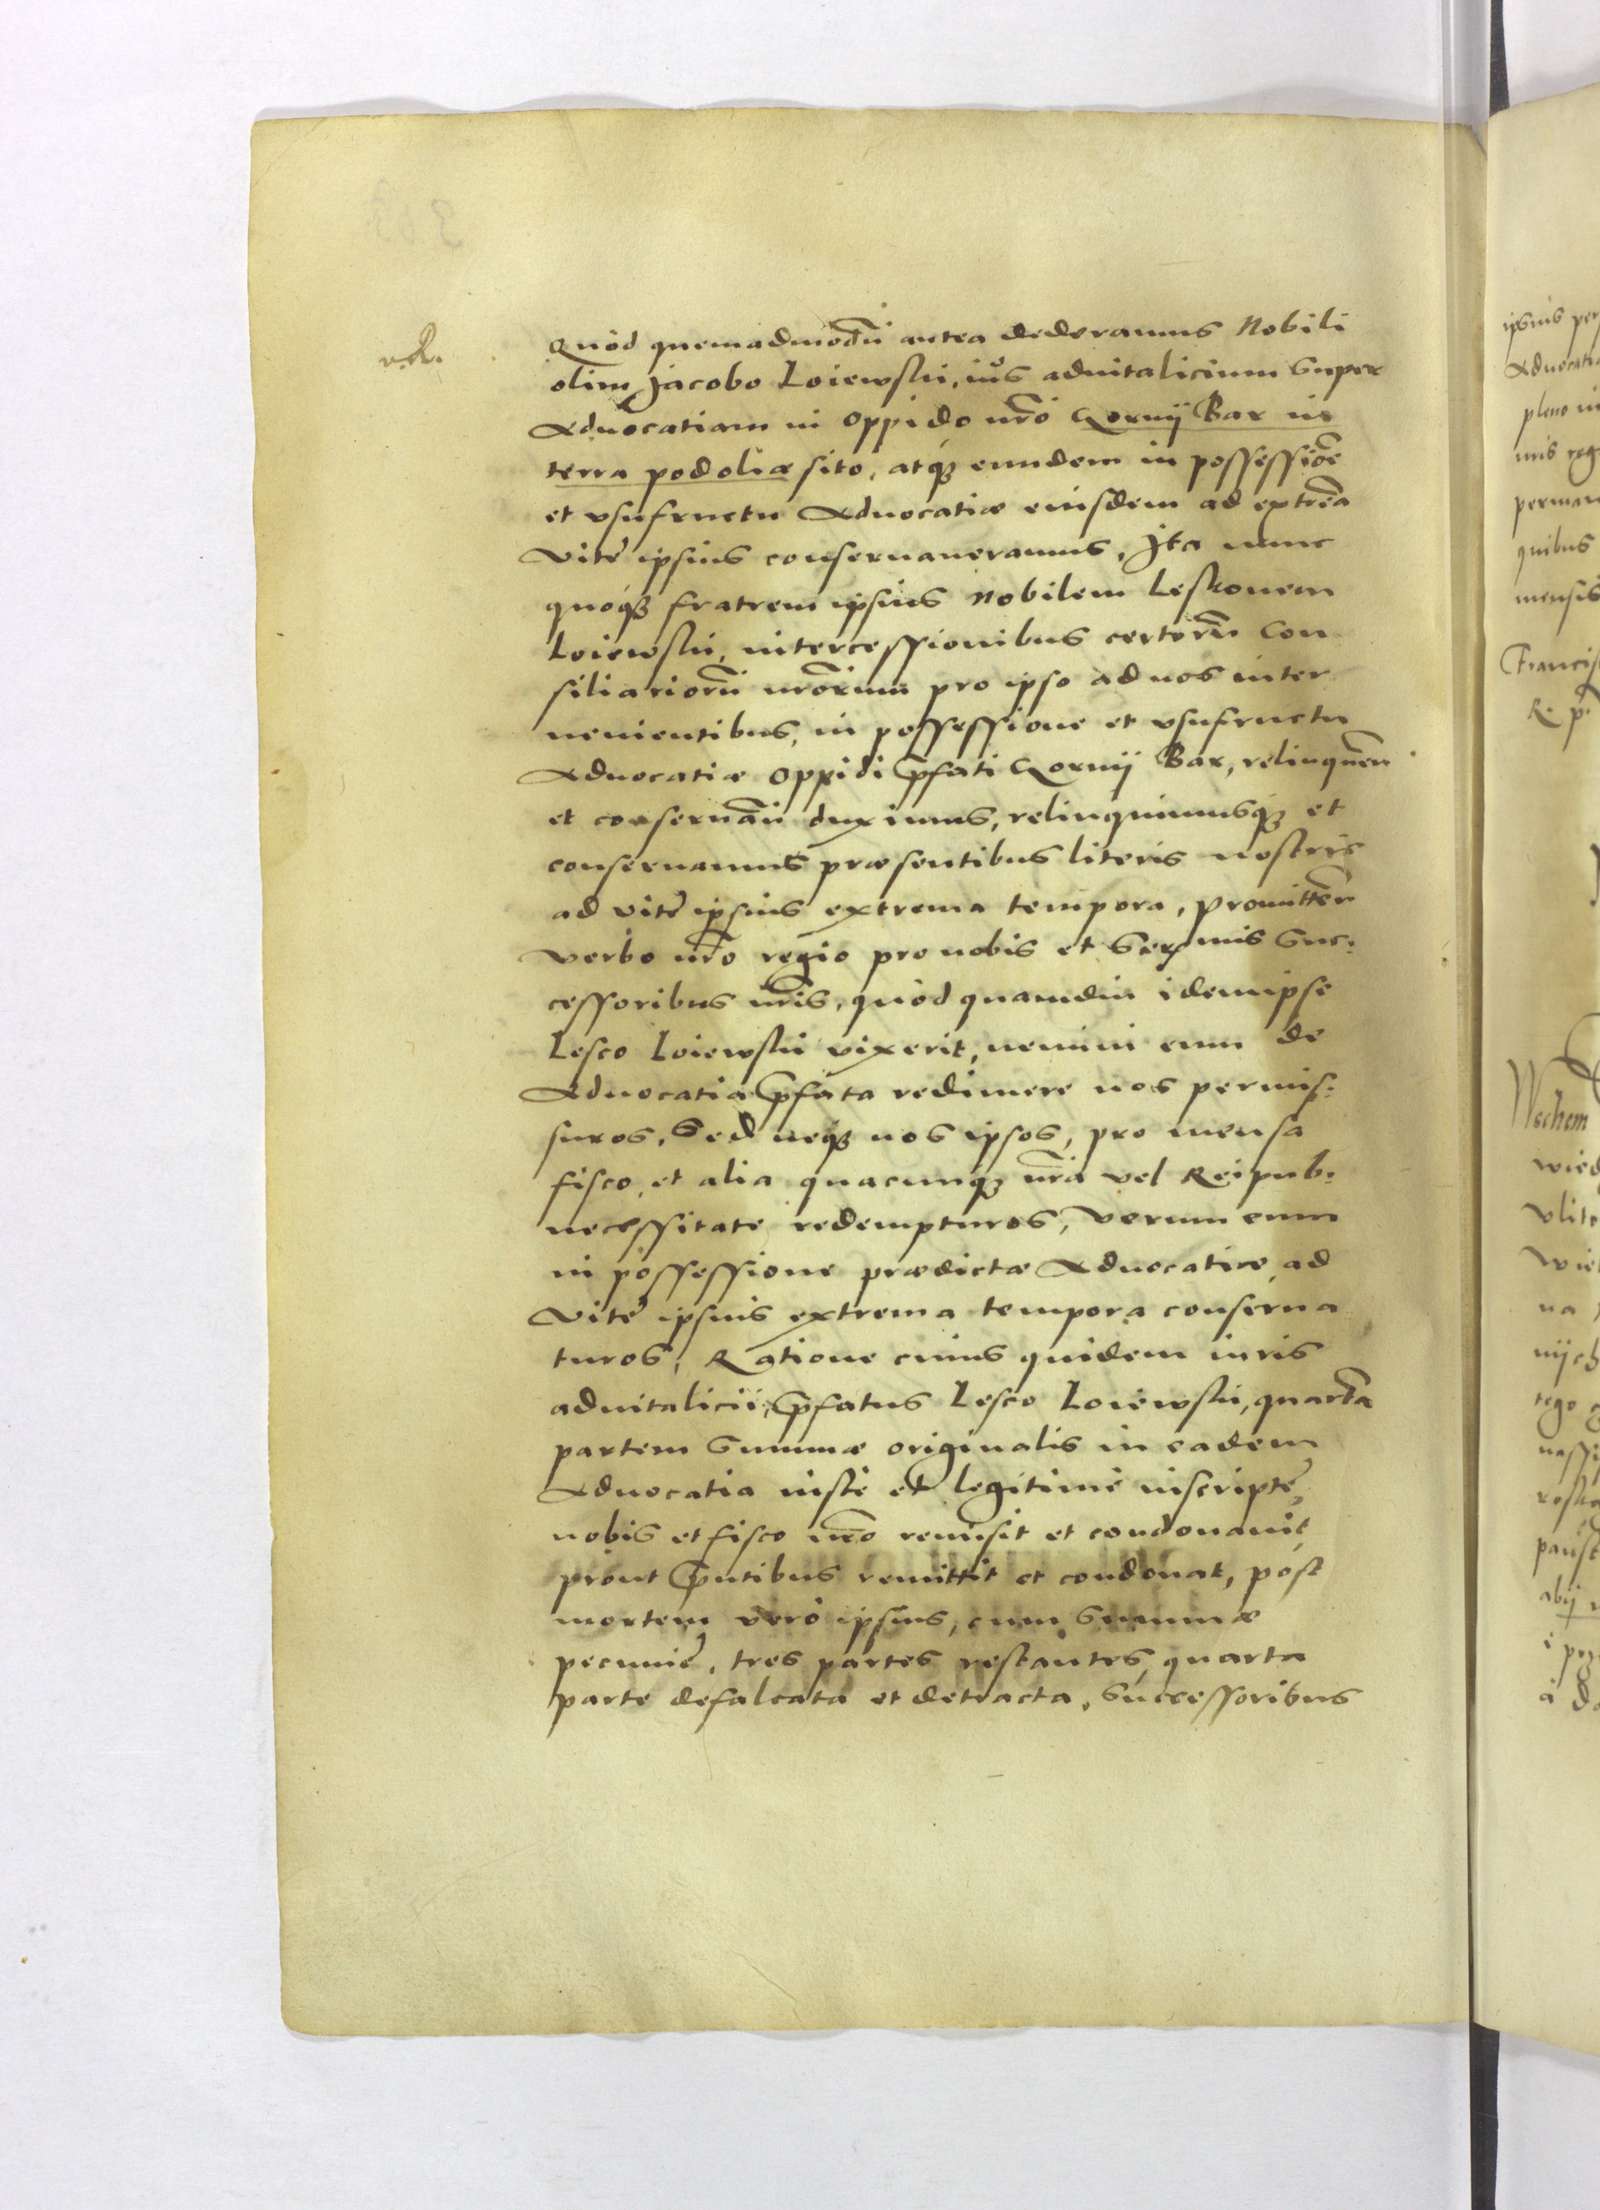 Quòd quemadmodũ antea dederamus Nobili
olim Jacobo Loiewskii, iůs aduitalicium super
Aduocatiam in Oppido nrõ Gornij Bar in
terra podoliæ sito, atqȝ eundem in possessiõe
et vsufructu Aduocatiæ eiusdem ad extrẽa
vitę ipsius conseruaueramus, Ita nunc
quoqȝ fratrem ipsius Nobilem Leskonem
Loiewskii, intercessionibus certorũ Con
siliariorũ nrõrum pro ipso ad nos inter
uenientibus, in possessione et vsufructu
Aduocatiæ Oppidi p̃fati Gornij Bar, relinquẽn
et conseruãn duximus, relinquimusqȝ et
conseruamus præsentibus literis nostris
ad vitę ipsius extrema tempora, Promitteñ
verbo nrõ regio pro nobis et Serenis Suc:
cessoribus nrĩs, quòd quamdiu idem ipse
Lesco Loiewskii vixerit, nemini eum de
Aduocatia p̃fata redimere nos permis:
suros, Sed neqȝ nos ipsos, pro mensa
fisco, et alia quacunqȝ nrã vel Reipub:
necessitate redempturos, Verum eum
in possessione prædictæ Aduocatiæ, ad
vitę ipsius extrema tempora conserua
turos, Ratione cuius quidem iuris
aduitalicii, p̃fatus Lesco Loiewskii, quartã
partem Summæ originalis in eadem
Aduocatia iustè et legitimè inscriptę,
nobis et fisco nrõ remisit et condonauit,
prout p̃ntibus remittit et condonat, post
mortem verò ipsius, cum Summæ
pecunię, tres partes restantes, quarta
parte defalcata et detracta, Successoribus
ipsius
pleno
quibus
mensis
R. p.